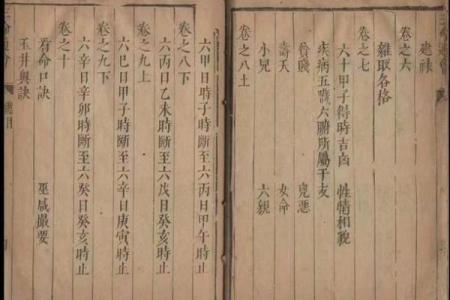 建祿
卷之六
雜取各格
卷之七
六十甲子得時吉凶 性情相貌
疾病五臟六腑所屬干支
貧賤 兇惡
壽夭 女命
小兒 六親
卷之八上
六甲日甲子時斷至六丙日甲午時止
卷之八下
六丙日乙未時斷至六戊日癸亥時止
卷之九上
六巳日甲子時斷至六辛日庚寅時止
卷之九下
六辛日辛卯時斷至六癸日癸亥時止
卷之十
看命口訣 巫咸撮要
玉井奧訣